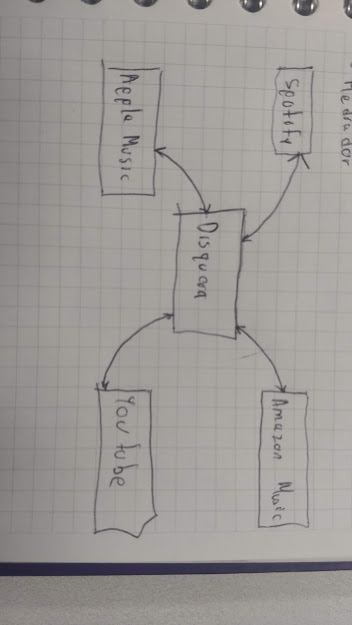 Mediador
Spotofy
Amazon Music
Disquera
Apple Music
You tube